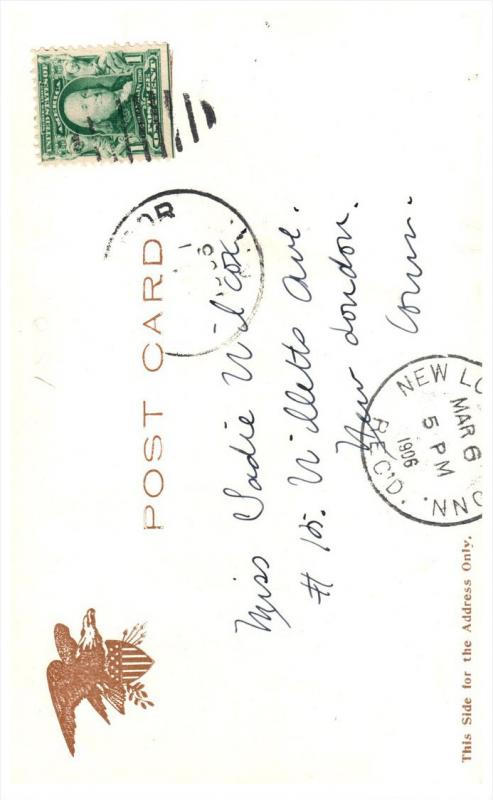 POST CARD
Miss Sadie Wilcox.
# 15. Willetts Ave.
New London.
Conn.
NEW LO
MAR 6
5 PM
1906
REC'D.
ONN.
This Side for the Address Only.